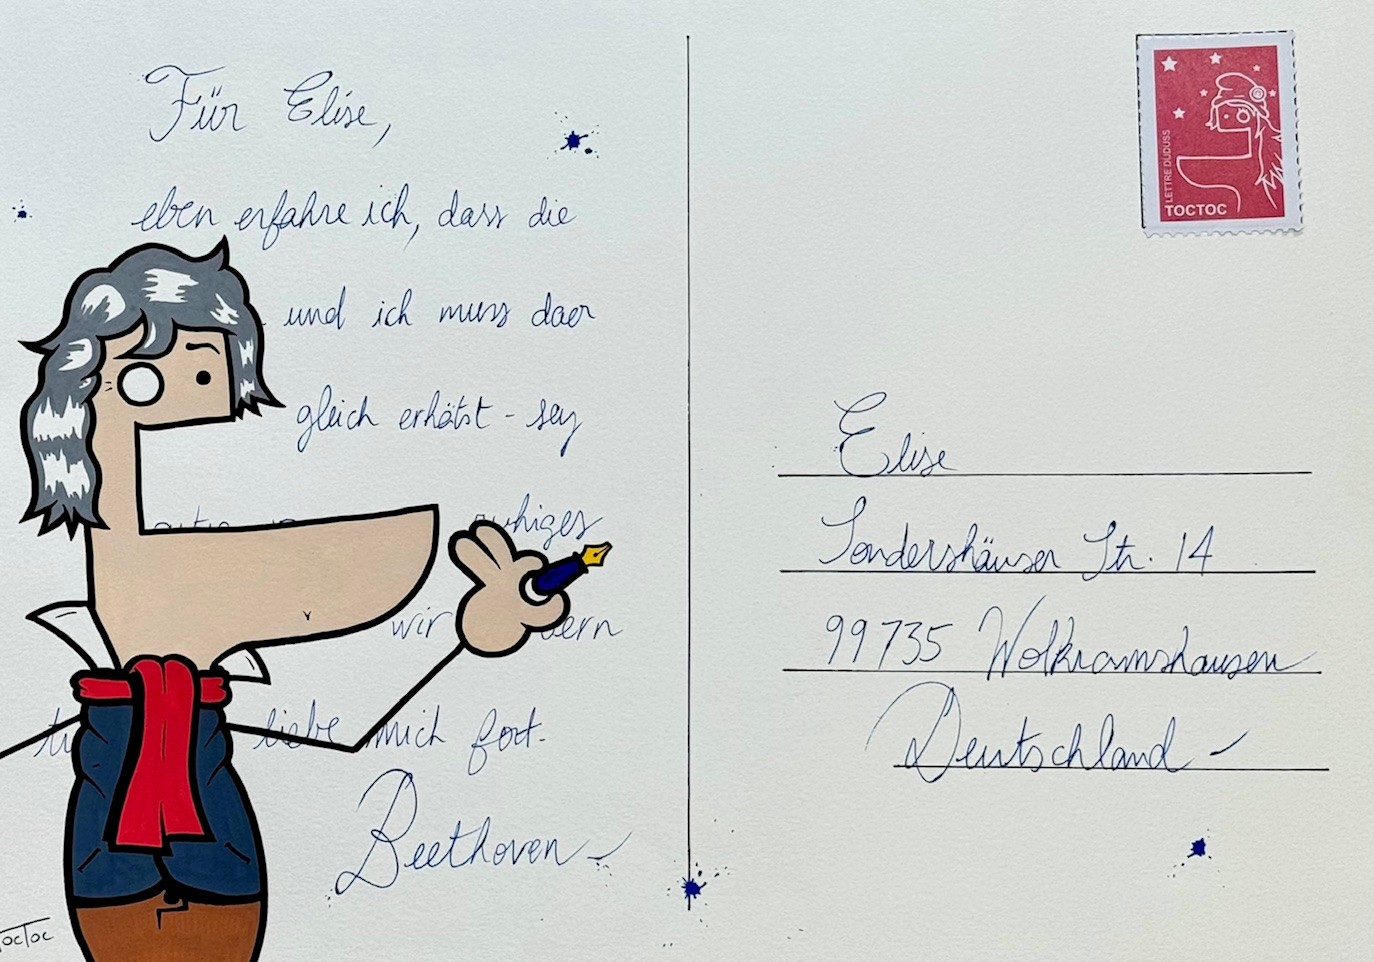 Für Elise,
eben erfahre ich, dass die
und ich muss daer
gleich erhätst - sey
ruhiges
wir
liebe mich fort.
Beethoven
TOCTOC
LETTRE DUDUSS
TOCTOC
Elise
Sondershäuser Str. 14
99735 Wolkramshausen
Deutschland